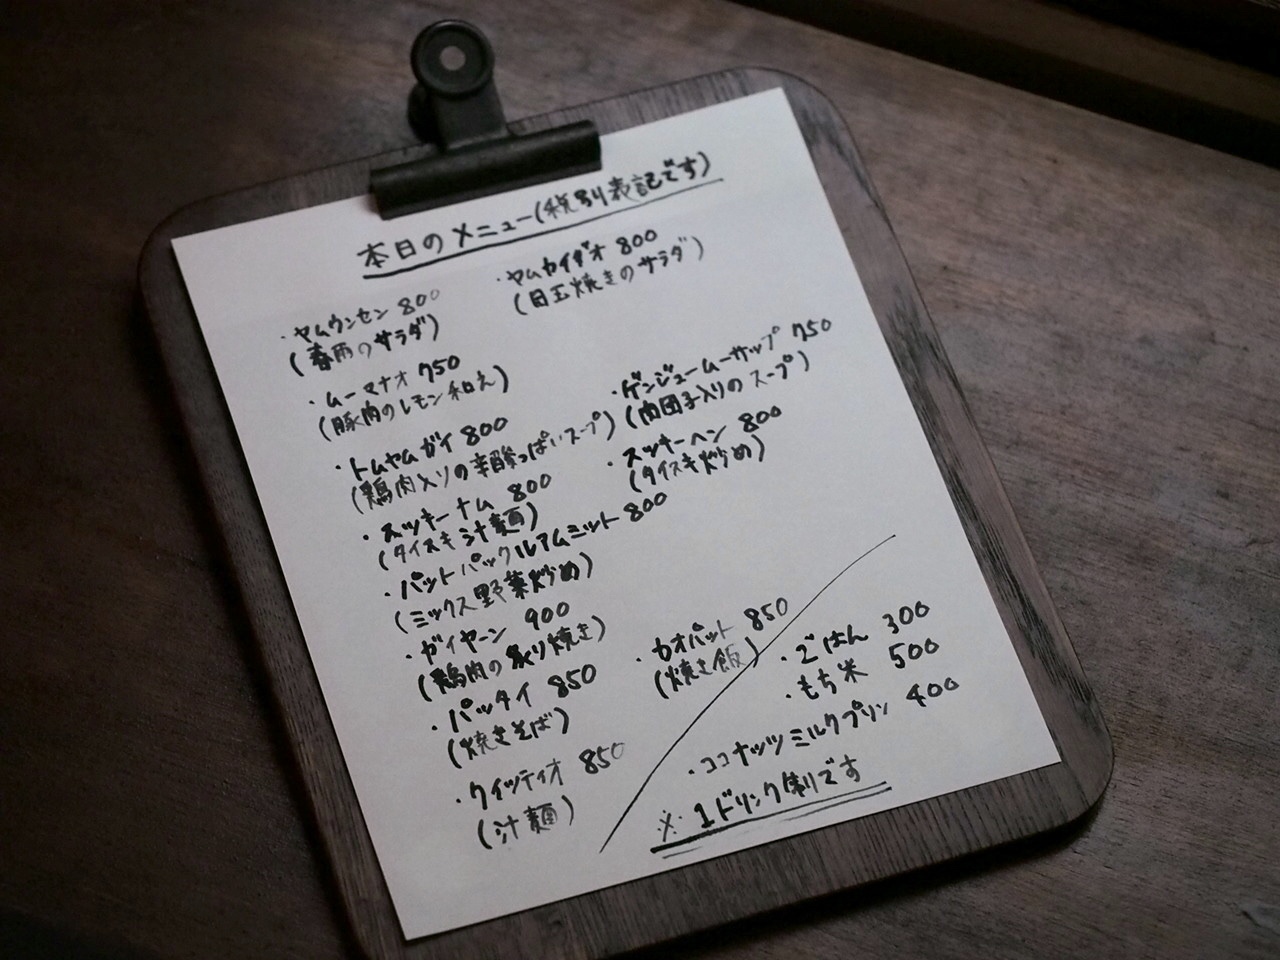 本日のメニュー(税別表記です)
・ヤムウンセン 800
(春雨のサラダ)
・ヤムカイダオ 800
(目玉焼きのサラダ)
・ムーマナオ 750
(豚肉のレモン和え)
・ゲンジュームーサップ 750
(肉団子入りのスープ)
・トムヤムガイ 800
(鶏肉入りの辛酸っぱいスープ)
・スッキーヘン 800
(タイスキ炒め)
・スッキーナム 800
(タイスキ汁麺)
・パットパックルアムミット 800
(ミックス野菜炒め)
・ガイヤーン 900
(鶏肉の炙り焼き)
・パッタイ 850
(焼きそば)
・カオパット 850
(焼き飯)
・クイッティオ 850
(汁麺)
・ごはん 300
・もち米 500
・ココナッツミルクプリン 400
※1ドリンク制です